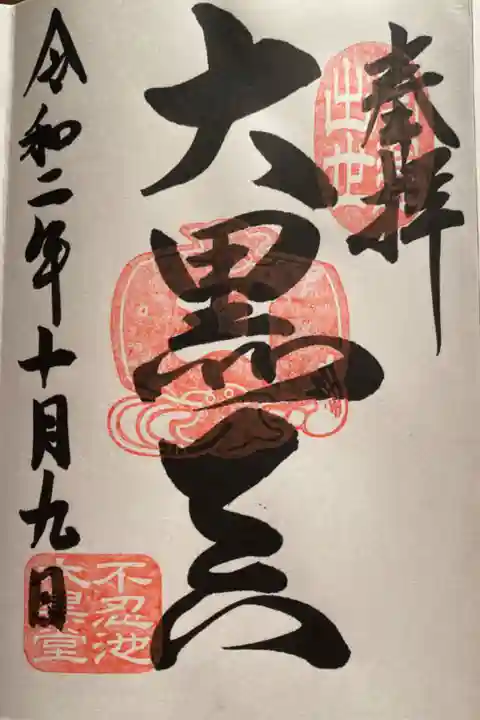 奉拝
大黒天
令和二年十月九日
不忍池
大黒堂